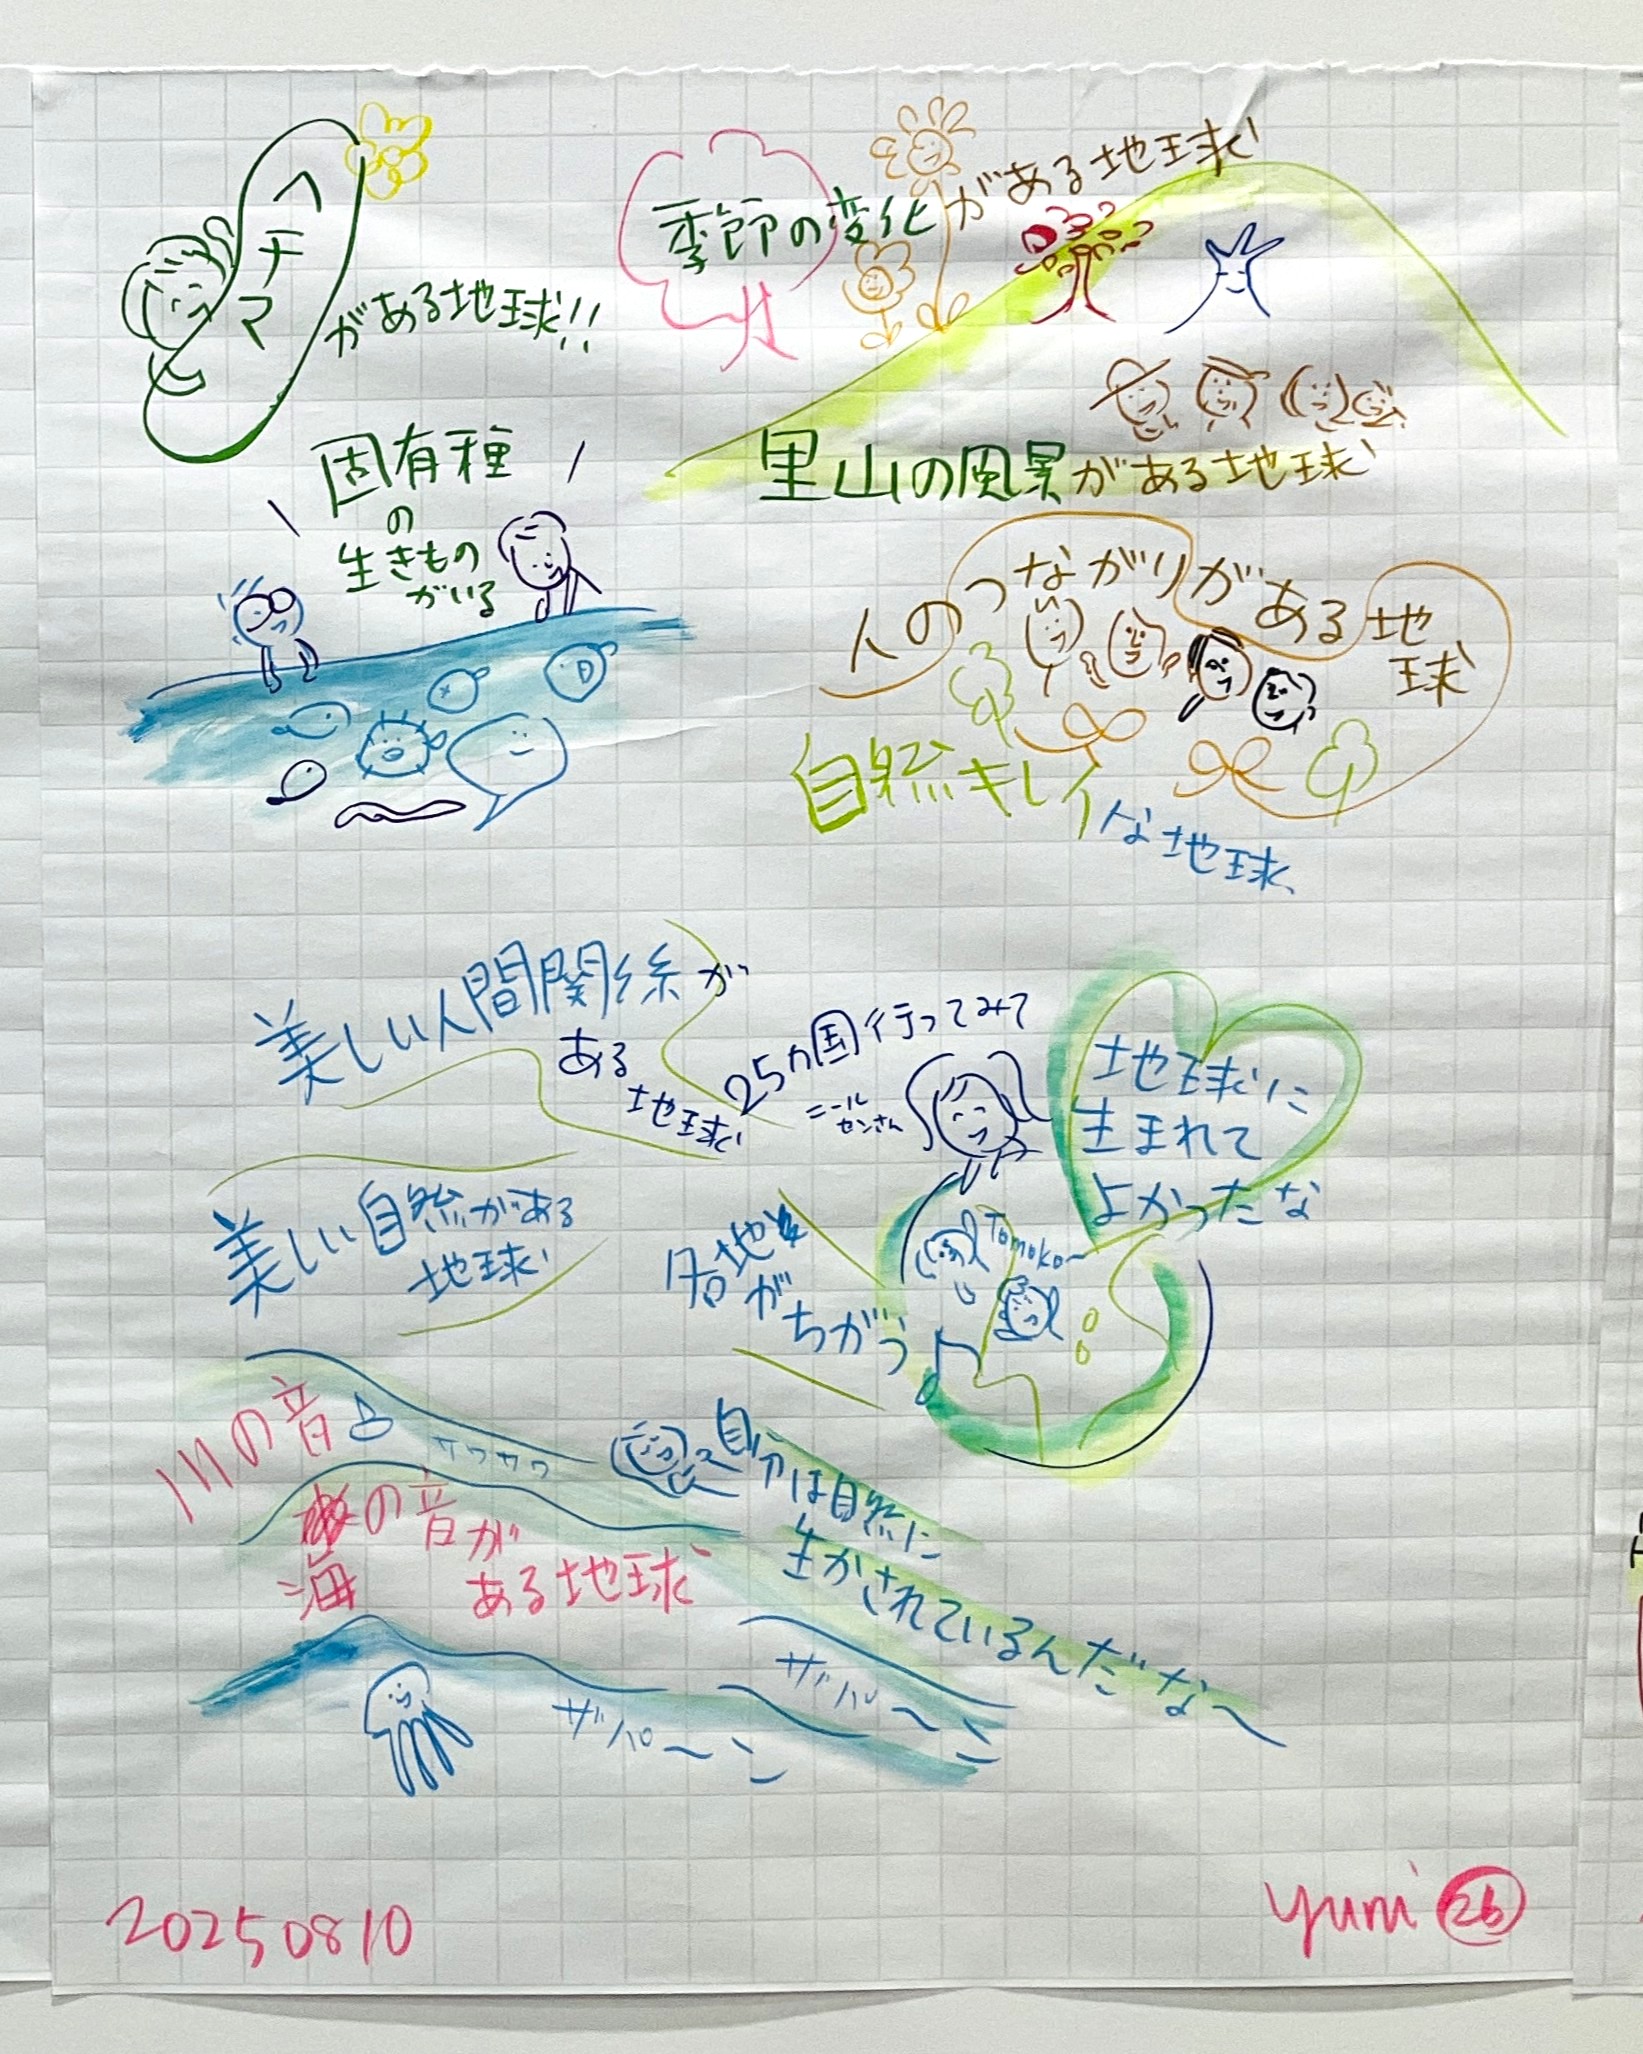 ヘチマ
がある地球!!
季節の変化がある地球
固有種
の
生きもの
がいる
里山の風景がある地球
人のつながりがある地球
自然キレイな地球
美しい人間関係が
ある
地球
25ヵ国行ってみて
ニール
センさん
地球に
生まれて
よかったな
美しい自然がある
地球
各地
が
ちがう
Tomoko~
川の音
サワサワ
海の音が
ある地球
自分は自然に
生かされているんだな〜
ザバ〜ン
ザバ〜ン
20250810
yumi 26